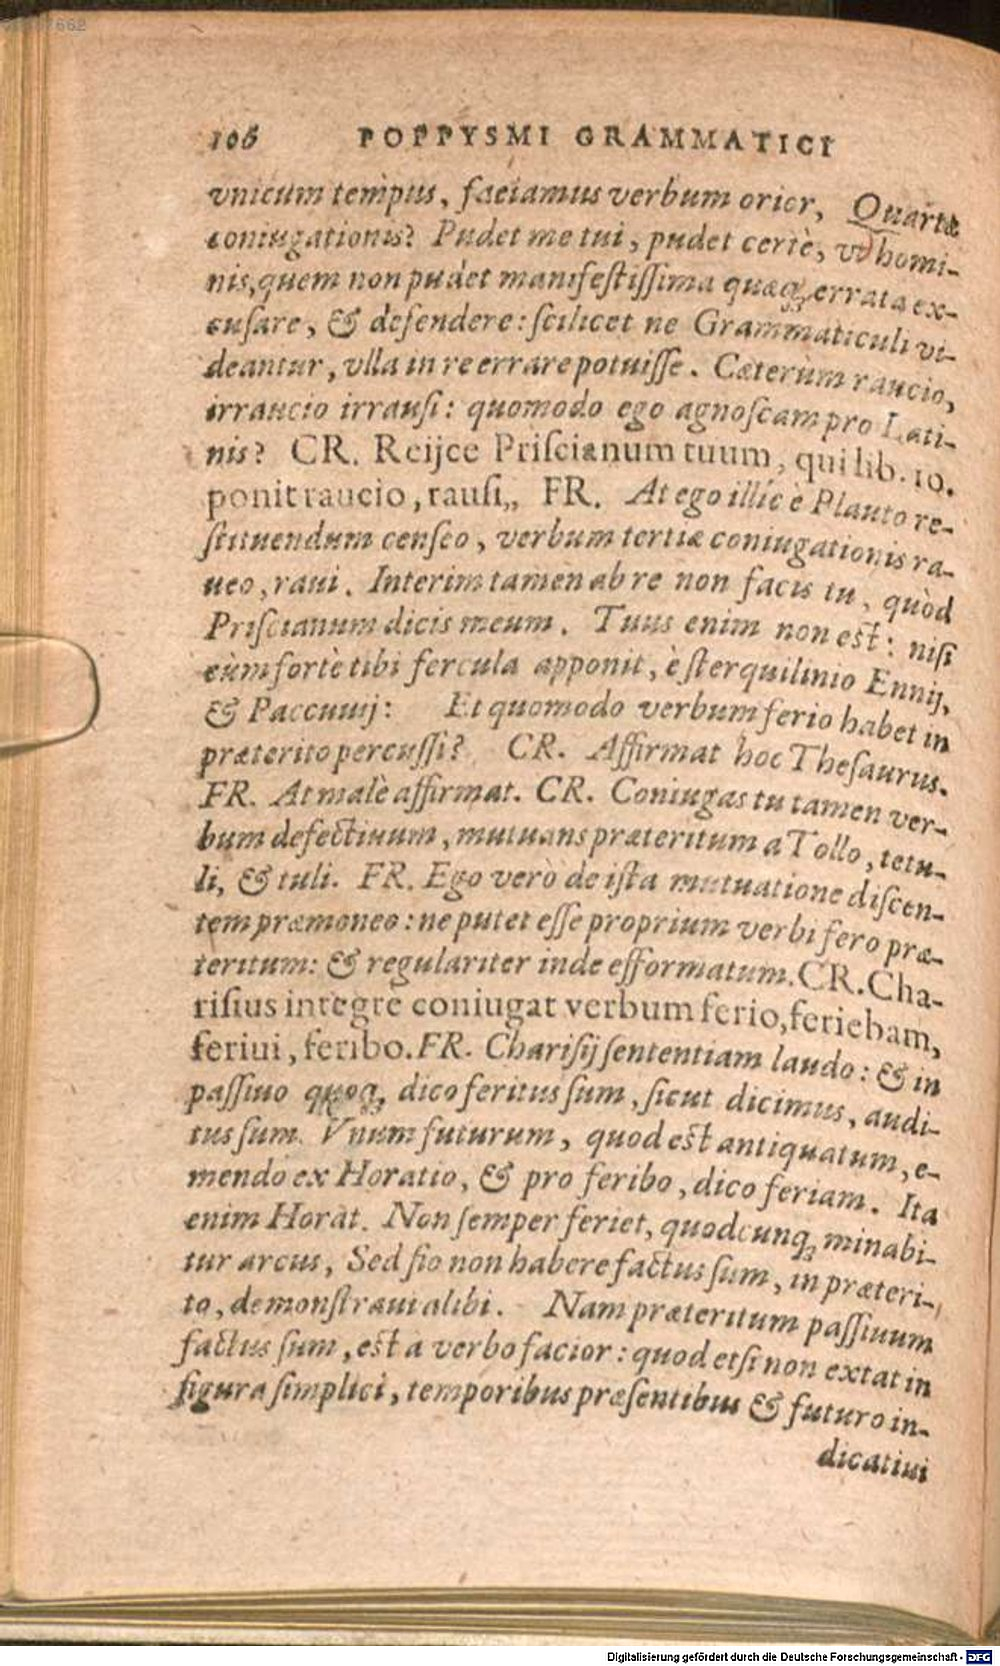 106 POPPYSMI GRAMMATICI
vnicum tempus, faciamus verbum orior, Quartæ
coniugationis? Pudet me tui, pudet certè, vt homi-
nis, quem non pudet manifestissima quæq; errata ex-
cusare, & defendere: scilicet ne Grammaticuli vi-
deantur, vlla in re errare potuisse. Cæterùm raucio,
irraucio irrausi: quomodo ego agnoscam pro Lati-
nis? CR. Reijce Priscianum tuum, qui lib. 10.
ponit raucio, rausi,, FR. At ego illic è Plauto re-
stituendum censeo, verbum tertiæ coniugationis ra-
ueo, raui. Interim tamen ab re non facis tu, quòd
Priscianum dicis meum. Tuus enim non est: nisi
cùm fortè tibi fercula apponit, è sterquilinio Ennij,
& Paccuuij: Et quomodo verbum ferio habet in
præterito percussi? CR. Affirmat hoc Thesaurus.
FR. At malè affirmat. CR. Coniugas tu tamen ver-
bum defectiuum, mutuans præteritum a Tollo, tetu-
li, & tuli. FR. Ego verò de ista mutuatione discen-
tem præmoneo: ne putet esse proprium verbi fero præ-
teritum: & regulariter inde efformatum. CR. Cha-
risius integre coniugat verbum ferio, feriebam,
feriui, feribo. FR. Charisij sententiam laudo: & in
passiuo quoq, dico feritus sum, sicut dicimus, audi-
tus sum. Vnum futurum, quod est antiquatum, e-
mendo ex Horatio, & pro feribo, dico feriam. Ita
enim Horat. Non semper feriet, quodcunq; minabi-
tur arcus, Sed fio non habere factus sum, in præteri-
to, demonstraui alibi. Nam præteritum passiuum
factus sum, est a verbo facior: quod etsi non extat in
figura simplici, temporibus præsentibus & futuro in-
dicatiui
Digitalisierung gefördert durch die Deutsche Forschungsgemeinschaft - DFG